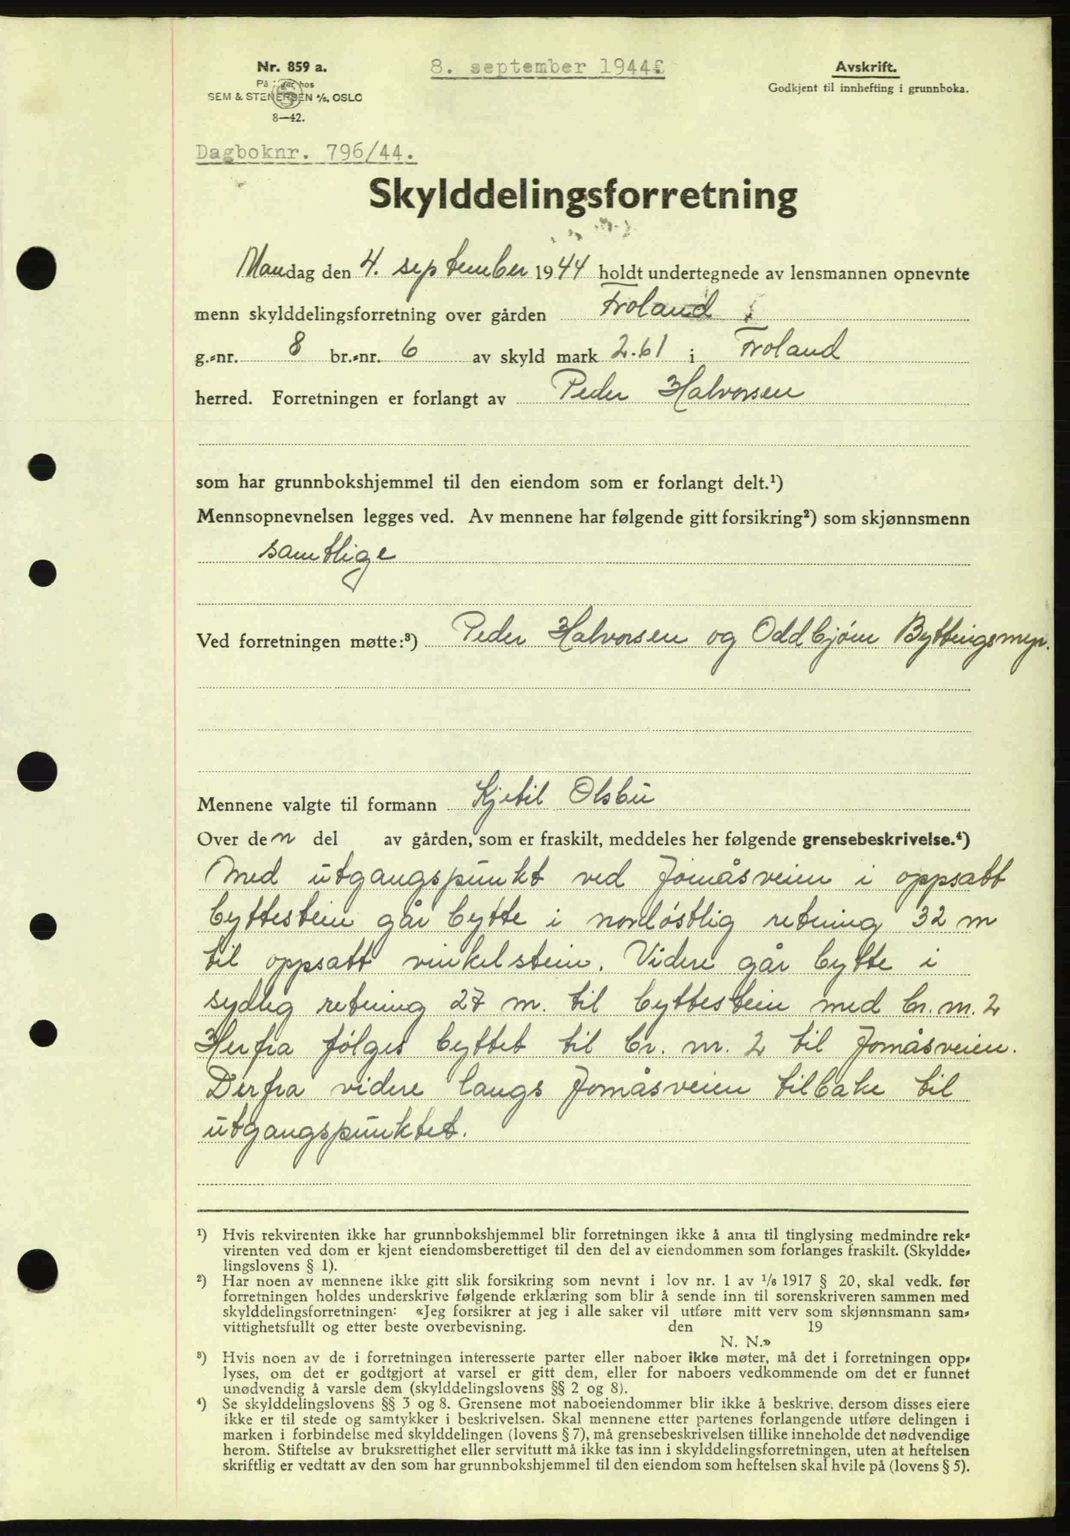 Nr. 859 a.
På hos
SEM & STENERSEN A/S, OSLO
8—42.
8. september 1944
Avskrift.
Godkjent til innhefting i grunnboka.
Dagboknr. 796/44.
Skylddelingsforretning
Mandag den 4. september 1944 holdt undertegnede av lensmannen opnevnte
menn skylddelingsforretning over gården Froland
g.-nr. 8 br.-nr. 6 av skyld mark 2.61 i Froland
herred. Forretningen er forlangt av Peder Halvorsen
som har grunnbokshjemmel til den eiendom som er forlangt delt.¹)
Mennsopnevnelsen legges ved. Av mennene har følgende gitt forsikring²) som skjønnsmenn
samtlige
Ved forretningen møtte:³) Peder Halvorsen og Oddbjørn Byttingsmyr.
Mennene valgte til formann Kjetil Olsbu
Over den del av gården, som er fraskilt, meddeles her følgende grensebeskrivelse.⁴)
Med utgangspunkt ved Jomåsveien i oppsatt
byttestein går bytte i nordøstlig retning 32 m
til oppsatt vinkelstein. Videre går bytte i
sydlig retning 27 m. til byttestein med br. nr. 2
Herfra følges byttet til br. nr. 2 til Jomåsveien.
Derfra videre langs Jomåsveien tilbake til
utgangspunktet.
¹) Hvis rekvirenten ikke har grunnbokshjemmel blir forretningen ikke å anta til tinglysing medmindre rek-
virenten ved dom er kjent eiendomsberettiget til den del av eiendommen som forlanges fraskilt. (Skyldde-
lingslovens § 1).
²) Har noen av mennene ikke gitt slik forsikring som nevnt i lov nr. 1 av 1/6 1917 § 20, skal vedk. før
forretningen holdes underskrive følgende erklæring som blir å sende inn til sorenskriveren sammen med
skylddelingsforretningen: «Jeg forsikrer at jeg i alle saker vil utføre mitt verv som skjønnsmann sam-
vittighetsfullt og etter beste overbevisning. den 19
N. N.»
³) Hvis noen av de i forretningen interesserte parter eller naboer ikke møter, må det i forretningen opp-
lyses, om det er godtgjort at varsel er gitt dem, eller for naboers vedkommende om det er funnet
unødvendig å varsle dem (skylddelingslovens §§ 2 og 8).
⁴) Se skylddelingslovens §§ 3 og 8. Grensene mot naboeiendommer blir ikke å beskrive, dersom disses eiere
ikke er til stede og samtykker i beskrivelsen. Skal mennene etter partenes forlangende utføre delingen i
marken i forbindelse med skylddelingen (lovens § 7), må grensebeskrivelsen tillike inneholde det nødvendige
herom. Stiftelse av bruksrettighet eller servitutt må ikke tas inn i skylddelingsforretningen, uten at heftelsen
skriftlig er vedtatt av den som har grunnbokshjemmel til den eiendom som heftelsen skal hvile på (lovens § 5).